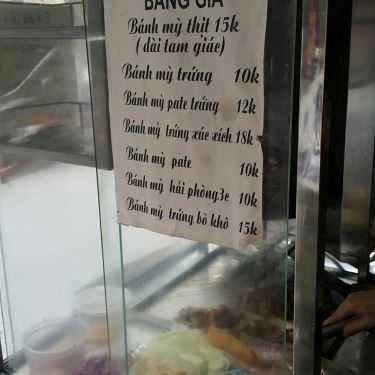 BẢNG GIÁ
Bánh mỳ thịt 15k
( dài tam giác)
Bánh mỳ trứng 10k
Bánh mỳ pate trứng 12k
Bánh mỳ trứng xúc xích 18k
Bánh mỳ pate 10k
Bánh mỳ hải phòng3e 10k
Bánh mỳ trứng bò khô 15k